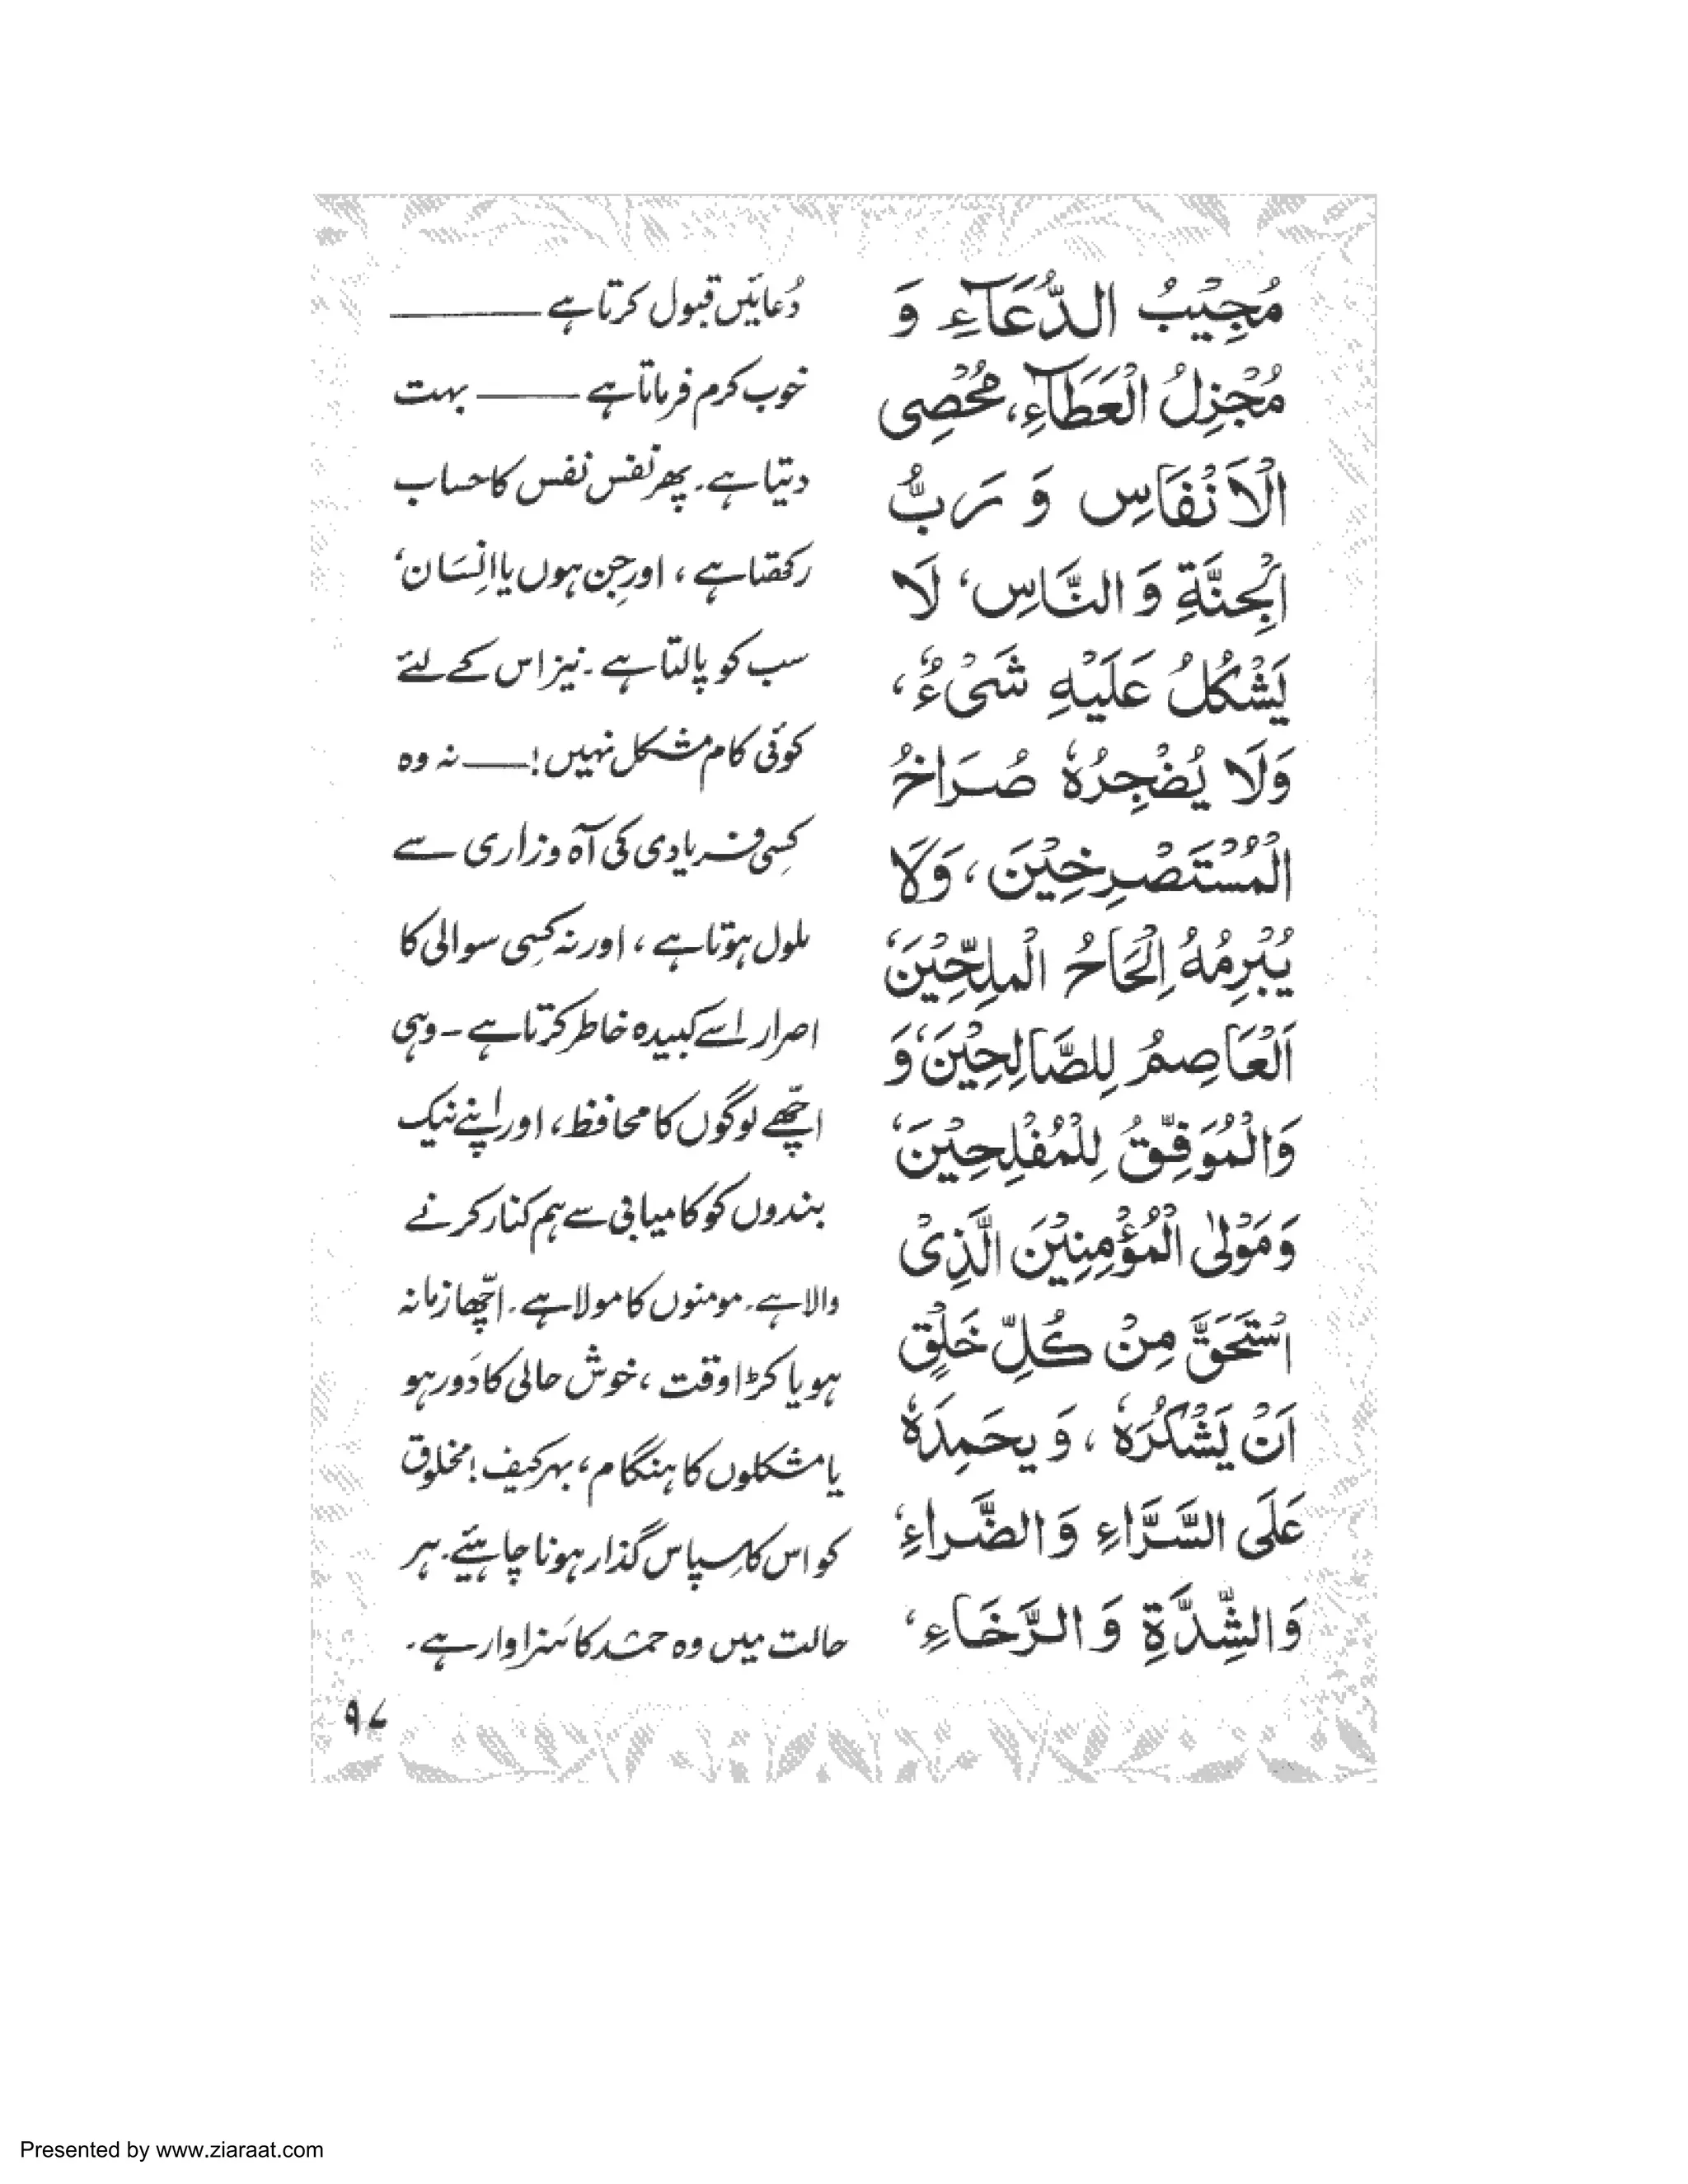 مُجِيْبُ الدُّعَآءِ وَ
مُجْزِلُ الْعَطَآءِ، مُحْصِی
الْاَنْفَاسِ وَ رَبُّ
الْجِنَّةِ وَ النَّاسِ، لَا
يَشْكُلُ عَلَيْهِ شَیْءٌ،
وَلَا يُضْجِرُهٗ صُرَاخُ
الْمُسْتَصْرِخِيْنَ، وَلَا
يُبْرِمُهُ اِلْحَاحُ الْملِحِّيْنَ،
اَلْعَاصِمُ لِلصَّالِحِيْنَ، وَ
وَالْمُوَفِّقُ لِلْمُفْلِحِيْنَ،
وَ مَوْلٰی الْمُؤْمِنِيْنَ الَّذِیْ
اسْتَحَقَّ مِنْ كُلِّ خَلْقٍ
اَنْ يَشْكُرَهٗ، وَ يحَمِدَهٗ
عَلَی السَّرَّاءِ وَ الضَّراءِ،
وَ الشِّدَّةِ وَ الرَّخَاءِ،
دُعائیں قبول کرتا ہے ——
خوب کرم فرماتا ہے —— بہت
دیتا ہے۔ پھر نفس نفس کا حساب
رکھتا ہے، اور جِن ہوں یا اِنسَان،
سب کو پالتا ہے۔ نیز اس کے لئے
کوئی کام مشکل نہیں! —— نہ وہ
کِسی فریادی کی آہ وزاری سے
ملول ہوتا ہے، اور نہ کِسی سوالی کا
اصرار اسے کبیدہ خاطر کرتا ہے۔ وہی
اچّھے لوگوں کا محافظ، اور اپنے نیک
بندوں کو کامیابی سے ہم کنار کرنے
والا ہے۔ مومنوں کا مولا ہے۔ اچّھا زمانہ
ہو یا کڑا وقت، خوش حالی کا دَور ہو
یا مشکلوں کا ہنگام، بہر کیف! مخلوق
کو اس کا سِپاس گذار ہونا چاہیئے۔ ہر
حالت میں وہ حمد کا سَزاوار ہے۔
۹۷
Presented by www.ziaraat.com